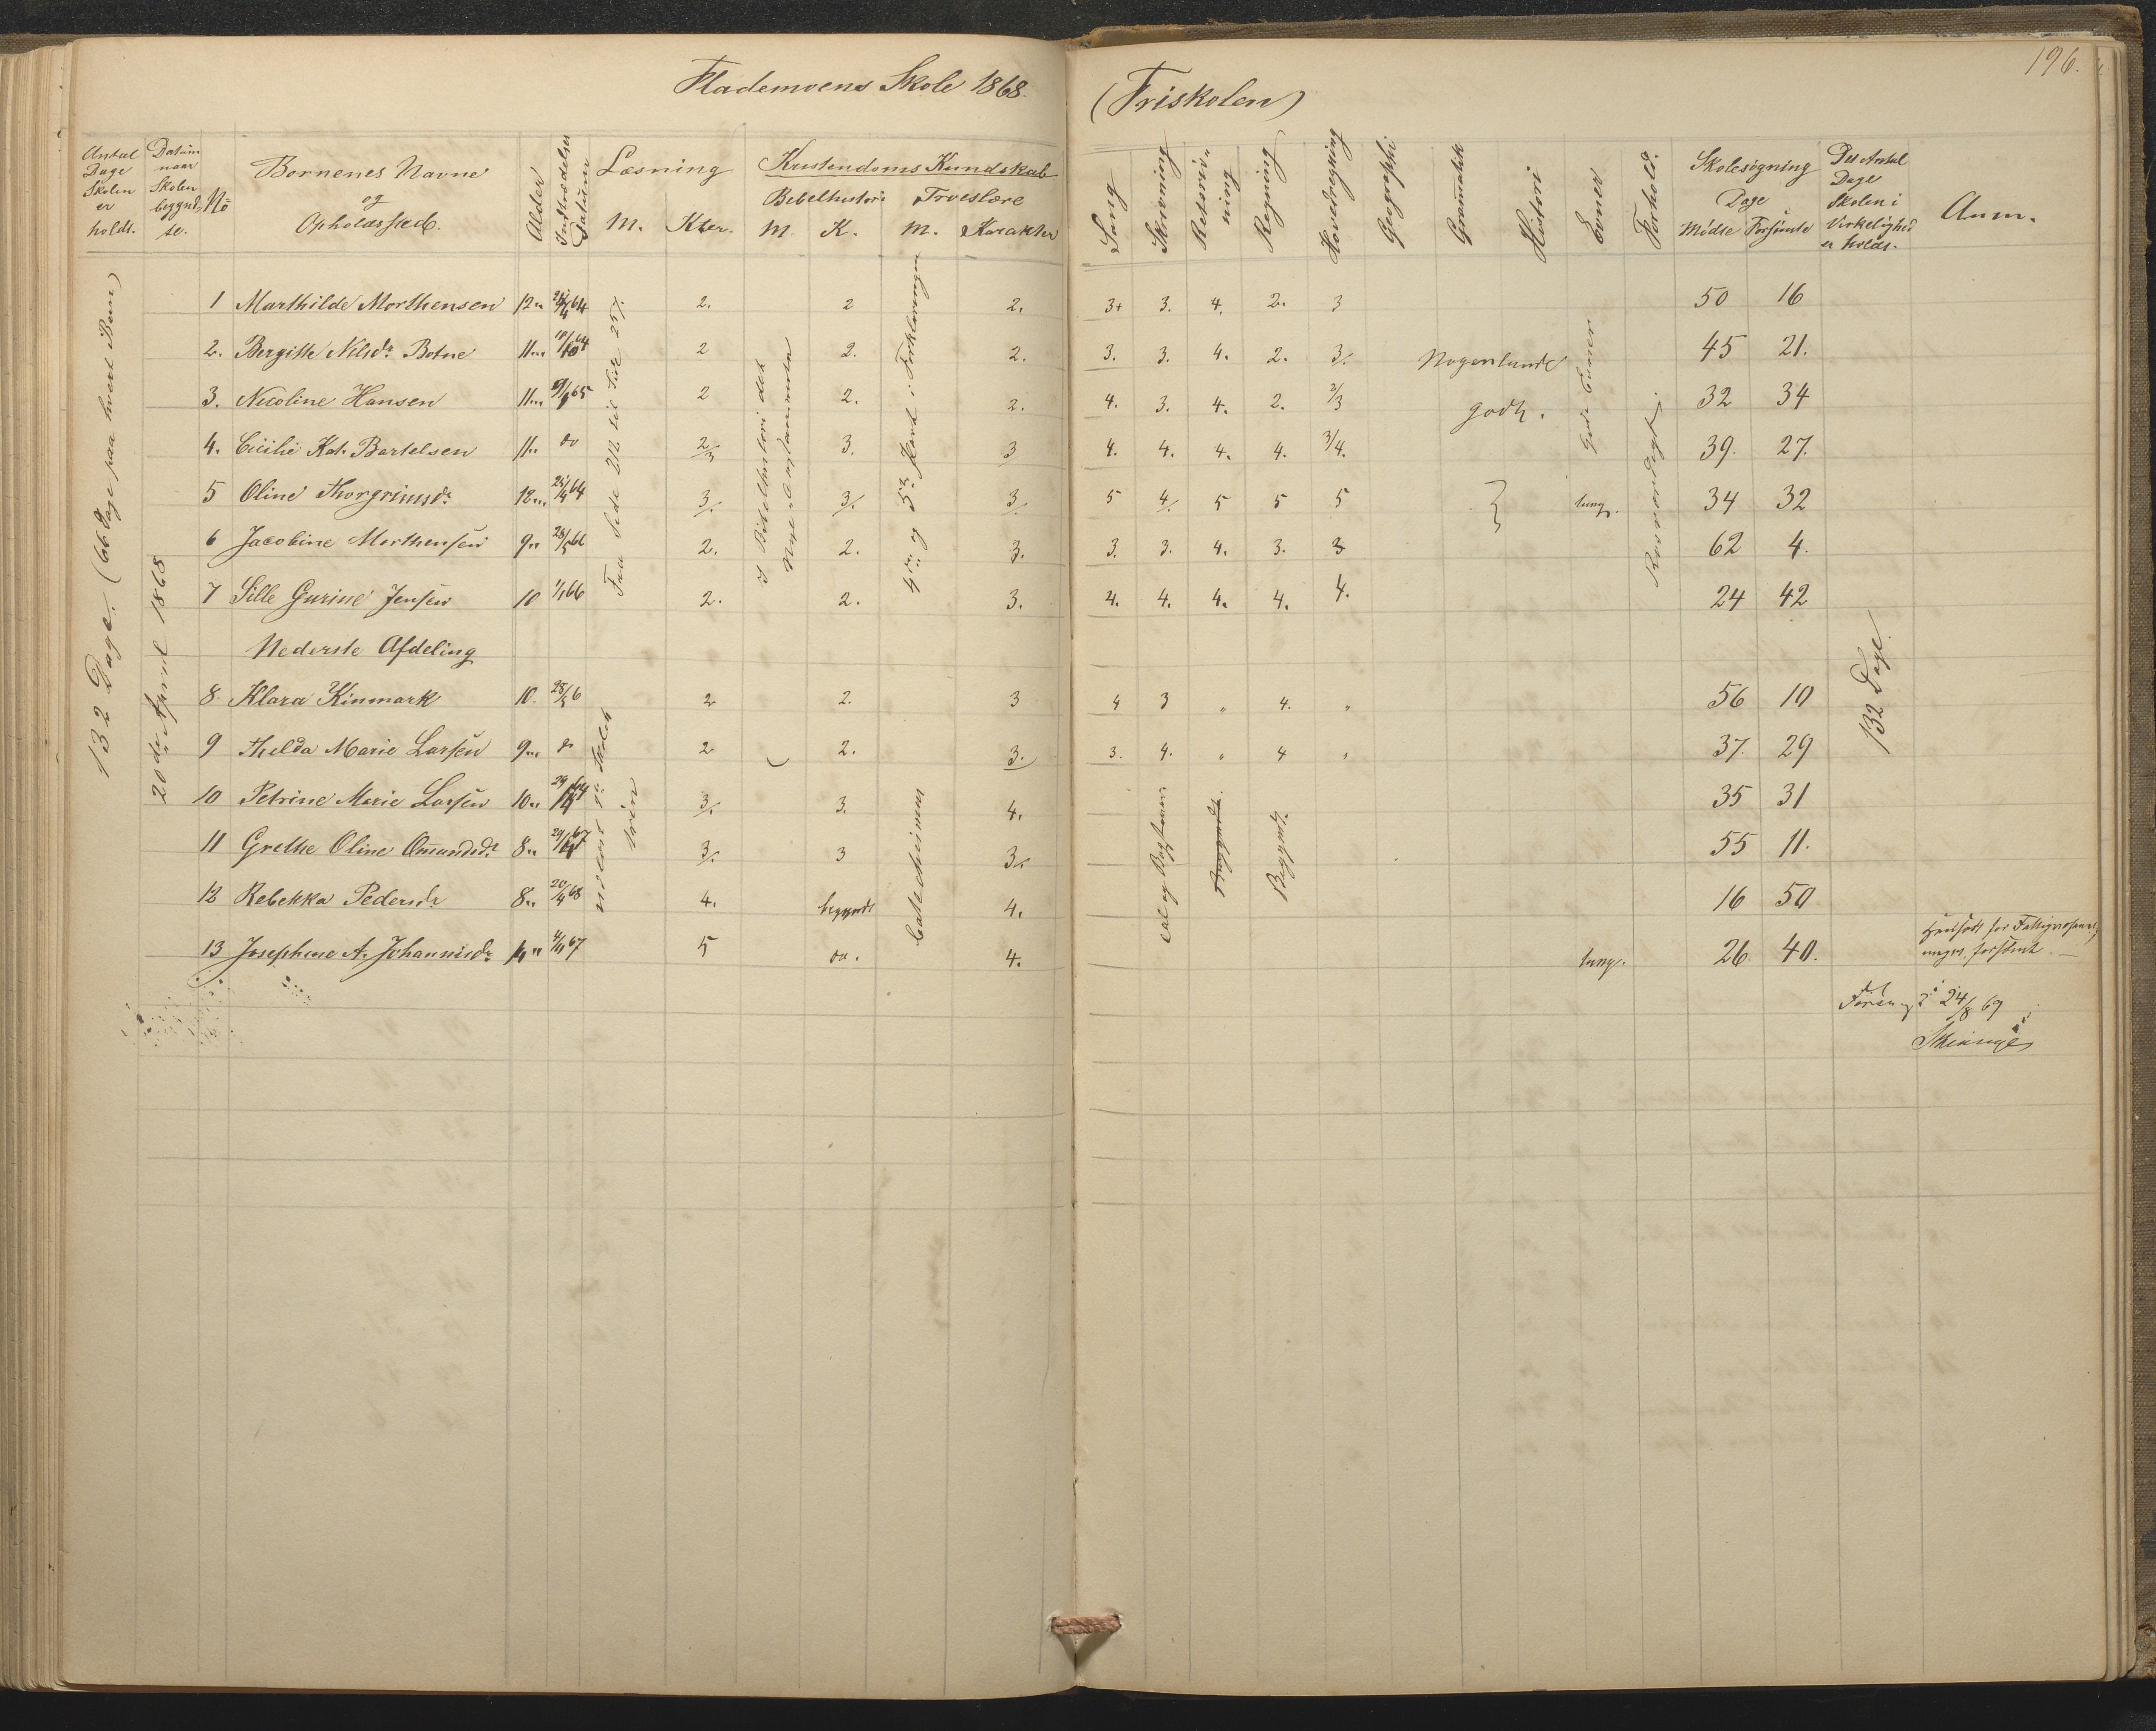 Flademoens Skole 1868. (Friskolen) 196.
Antal Dage Skolen er holdt.
Datum naar Skolen begynd- te.
No
Børnenes Navne og Opholdssted.
Alder
Indtrædelses Datum
Læsning
M. Kter.
Kristendoms Kundskab
Bibelhistori Troeslære
M. K. M. Karakter
Sang
Skrivning
Retsriv- ning
Regning
Hovedregning
Geographi
Gramatik
Histori
Evner
Forhold.
Skolesøgning
Dage
Mødte Forsømte
Det Antal Dage Skolen i Virkelighed er holdt.
Anm.
132 Dage. (66 Dage paa hvert Barn)
20de April 1868
Fra Side 212 til Side 257.
i Forklaringen
4de og 5te Part
1 Marthilde Morthensen 12 " 64 2. 2 2. 3+ 3. 4. 2. 3 50 16
2. Bergitte Nilsdr Botne 11 " 18/10 64 2 2. 2. 3. 3. 4. 2. 3/. Nogenlunde 45 21.
3. Nicoline Hansen 11 " 65 2 2. 2. 4. 3. 4. 2. 2/3 godt. 32 34
4. Cicilie Kat. Bartelsen 11 " do 2/3 3. 3 4. 4. 4. 4. 3/4. 39. 27.
gode Evner
5 Oline Thorgrimsdr 12 " 25/4 64 3/. 3/. 3/. 5 4/. 5 5 5 tung. 34 32
6 Jacobine Morthensen 9 " 28/5 66 2. 2. 3. 3. 3. 4. 3. 3 62 4.
7 Sille Gurine Jensen 10 1/1 66 2. 2. 3. 4. 4. 4. 4. 4. 24 42
Nederste Afdeling
8. Klara Kinmark 10. 28/5 6 2 2. 3 4 3 " 4. " 56 10
9 Thelda Marie Larsen 9 " do 2 2. 3. 3. 4. " 4 " 37. 29
132 Dage.
10 Petrine Marie Larsen 10 " 3/. 3. 4. 35 31
11 Grethe Oline Omundsdr 8 " 67 3/. 3 3/. 55 11.
12 Rebekka Pedersdr 8 " 20/4 68 4. begyndt 4. 16 50
13 Josephine A. Johannisdr " 4/11 67 5 do. 4. tung. 26 40.
Catechismus
Begyndt.
24/8 69